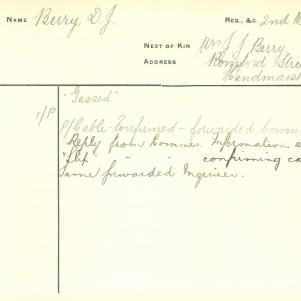 NAME Berry, D. J. REG. &C. 2nd
NEXT OF KIN Mrs J. J. Berry
ADDRESS Street
Hindmarsh
"Gassed"
1/P
P/Cable Confirmed - forwarded
Reply from Commes. Information
"Slip" - - confirming
Same forwarded Inquirer.